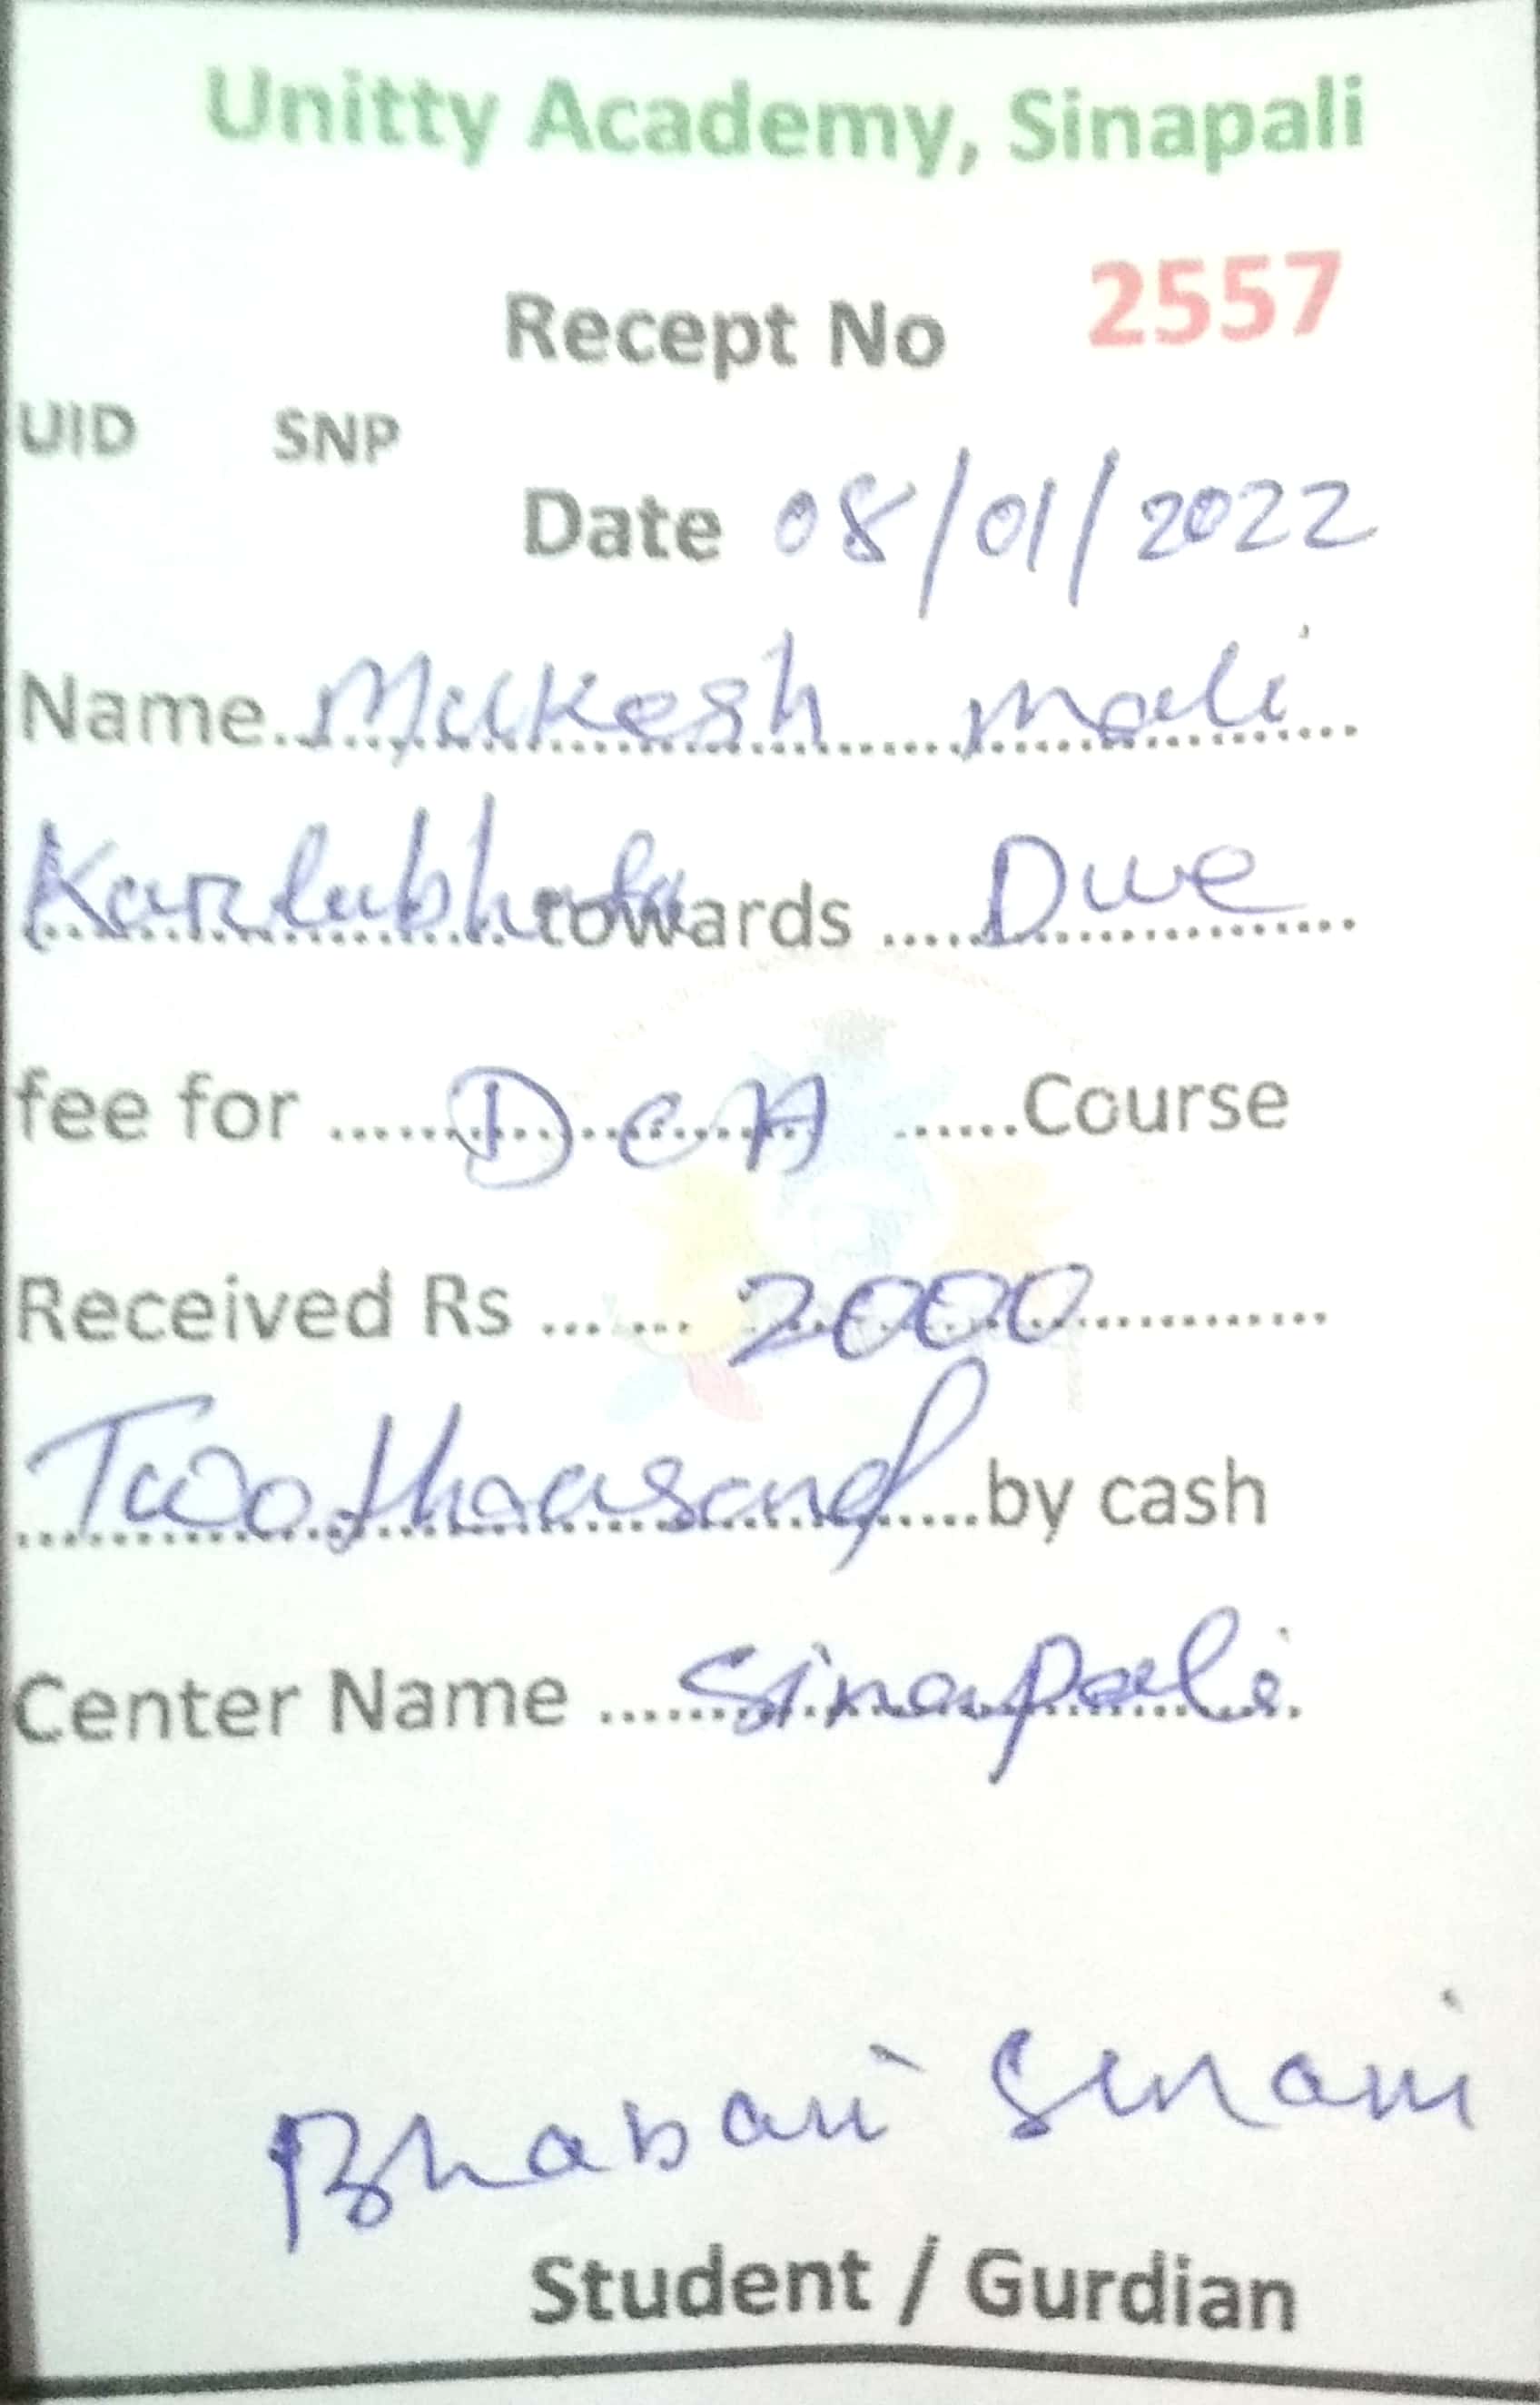 Unitty Academy, Sinapali
Recept No 2557
UID SNP
Date 08/01/2022
Name Mukesh mali
towards Due
fee for DCA Course
Received Rs 2000
Two thousand by cash
Center Name Sinapali
Bhabani Sunani
Student / Gurdian